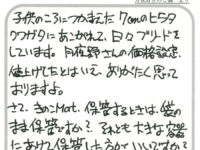 子供のころにつかまえた7cmのヒラタ
クワガタにあこがれて、日々ブリードを
しています。月夜野さんの価格設定、
値上げしたとはいえ、ありがたく思って
おりますよ。
さて、きのこMatは、保管するときは、袋の
まま保管ですか？それとも大きな容器
にあけて保管した方がいいですか？